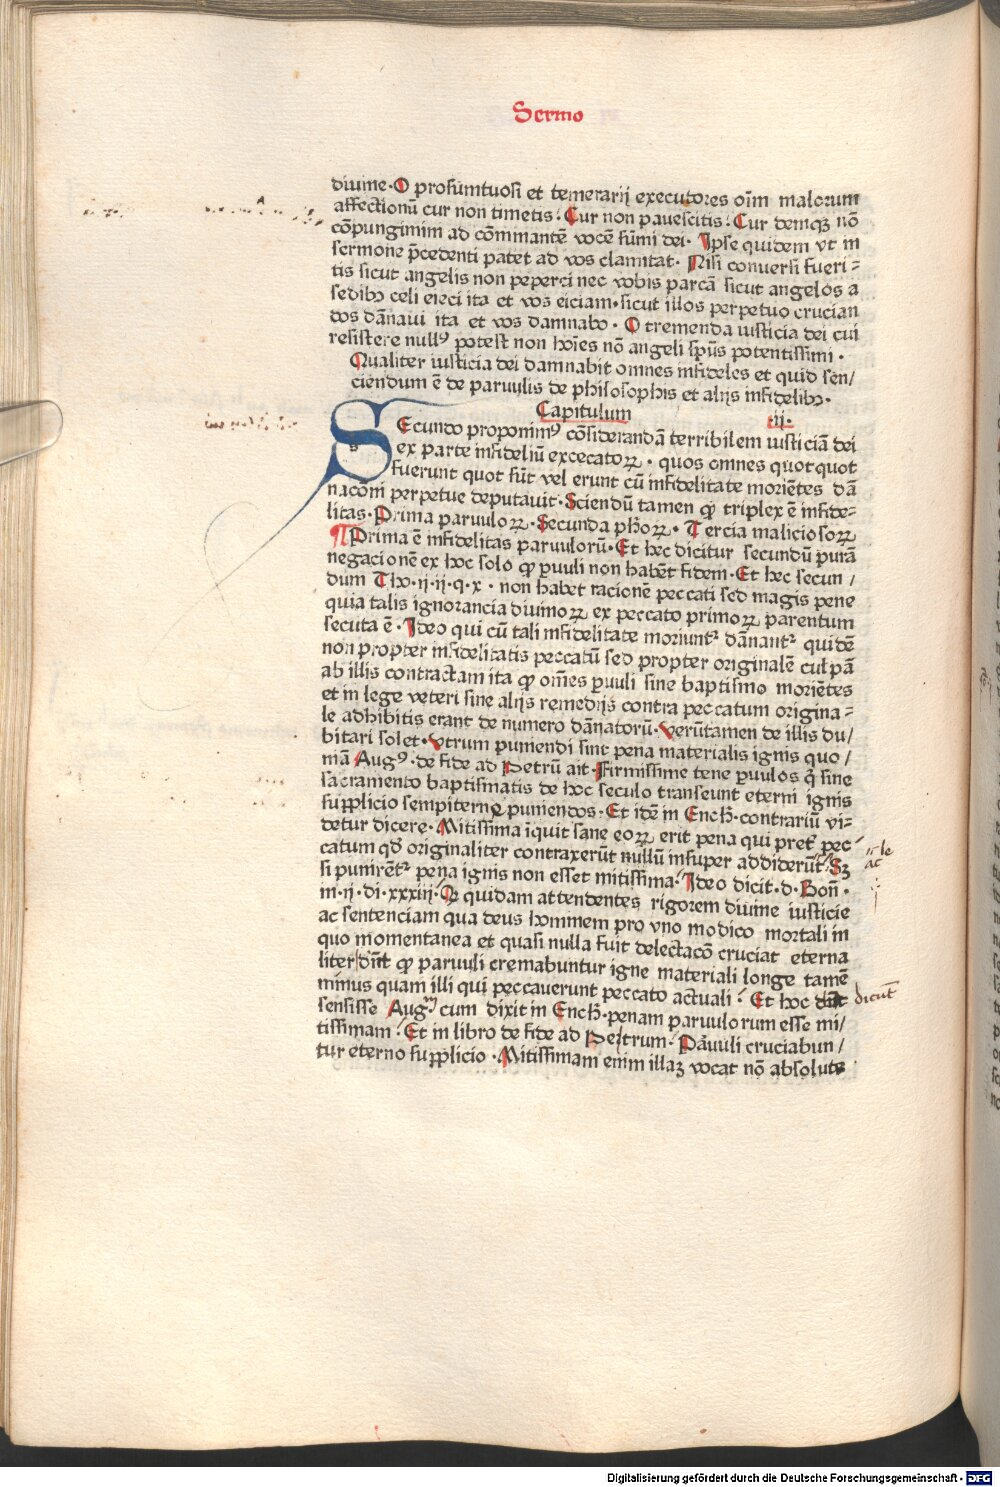 Sermo
diuine · O presumtuosi et temerarij executores oīm malorum
affectionū cur non timetis? Cur non pauescitis? Cur deniqꝫ nō
cōpungimini ad cōminantē vocē sūmi dei · Ipse quidem vt in
sermone p̄cedenti patet ad vos clamitat · Nisi conuersi fueri=
tis sicut angelis non peperci nec vobis parcā sicut angelos a
sedibꝰ celi eieci ita et vos eiciam · sicut illos perpetuo crucian
dos dānaui ita et vos damnabo · O tremenda iusticia dei cui
resistere nullꝰ potest non hoīes nō angeli spūs potentissimi ·
Qualiter iusticia dei damnabit omnes infideles et quid sen/
ciendum ē de paruulis de philosophis et alijs infidelibꝰ ·
Capitulum ij ·
SEcundo proponimꝰ cōsiderandā terribilem iusticiā dei
ex parte infideliū excecatoꝝ · quos omnes quotquot
fuerunt quot sūt vel erunt cū infidelitate moriētes dā
nacōni perpetue deputauit · Sciendū tamen ꝙ triplex ē infide=
litas · Prima paruuloꝝ · Secunda phoꝝ · Tercia maliciosoꝝ
¶ Prima ē infidelitas paruulorū · Et hec dicitur secundū purā
negacionē ex hoc solo ꝙ ꝑuuli non habēt fidem · Et hec secun /
dum Tho · ij · ij · q · x · non habet racionē peccati sed magis pene
quia talis ignorancia diuinoꝝ ex peccato primoꝝ parentum
secuta ē · Ideo qui cū tali infidelitate moriunt᷑ dānant᷑ quidē
non propter infidelitatis peccatū sed propter originalē culpā
ab illis contractam ita ꝙ om̄es ꝑuuli sine baptismo moriētes
et in lege veteri sine alijs remedijs contra peccatum origina=
le adhibitis erant de numero dānatorū · Verūtamen de illis du/
bitari solet · Vtrum puniendi sint pena materialis ignis quo /
niā Augꝰ · de fide ad Petrū ait · Firmissime tene ꝑuulos q̄ sine
sacramento baptismatis de hoc seculo transeunt eterni ignis
supplicio sempiterne puniendos · Et idē in Ench · contrariū vi=
detur dicere · Mitissima īquit sane eoꝝ erit pena qui pret᷑ pec
catum qd̄ originaliter contraxerūt nullū insuper addiderūt · Sꝫ
si punirēt᷑ pena ignis non esset mitissima · Ideo dicit · d · Bon̄ ·
in · ij · di · xxxiij · Ꝙ quidam attendentes rigorem diuine iusticie
ac sentenciam qua deus hominem pro vno modico mortali in
quo momentanea et quasi nulla fuit delectacō cruciat eterna
liter dn̄t ꝙ paruuli cremabuntur igne materiali longe tamē
minus quam illi qui peccauerunt peccato actuali · Et hoc dicūt
sensisse Augꝰ cum dixit in Ench · penam paruulorum esse mi/
tissimam · Et in libro de fide ad Petrum · Paruuli cruciabun /
tur eterno supplicio · Mitissimam enim illaꝫ vocat nō absolute
Digitalisierung gefördert durch die Deutsche Forschungsgemeinschaft · DFG